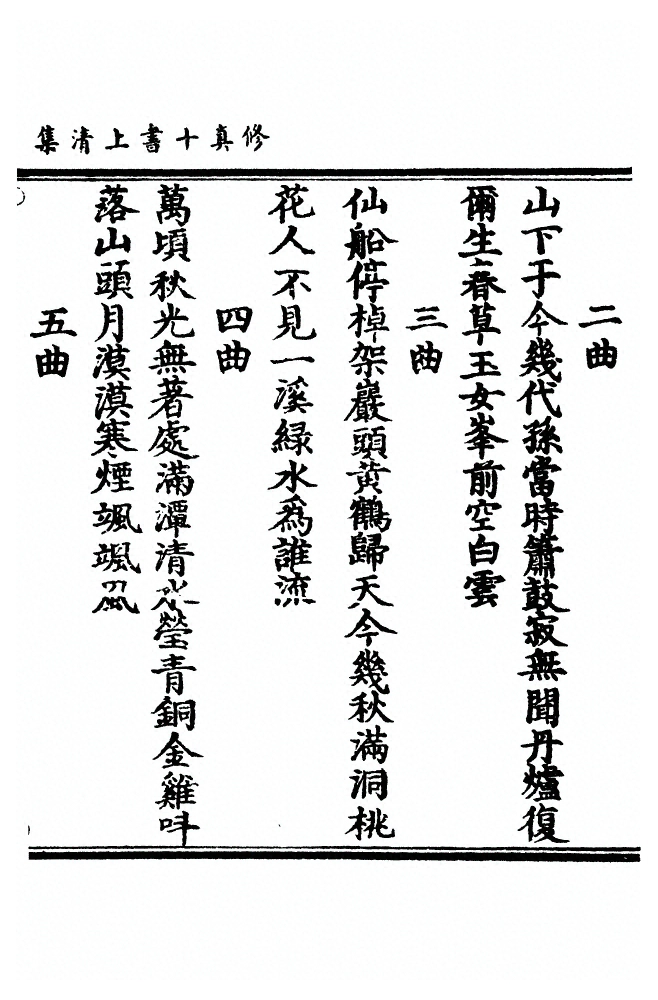 修真十書上清集
二曲
山下于今幾代孫當時簫鼓寂無聞丹爐復
爾生春草玉女峯前空白雲
三曲
仙船停棹架巖頭黃鶴歸天今幾秋滿洞桃
花人不見一溪綠水爲誰流
四曲
萬頃秋光無著處滿潭清水瑩青銅金雞呌
落山頭月漠漠寒煙颯颯風
五曲